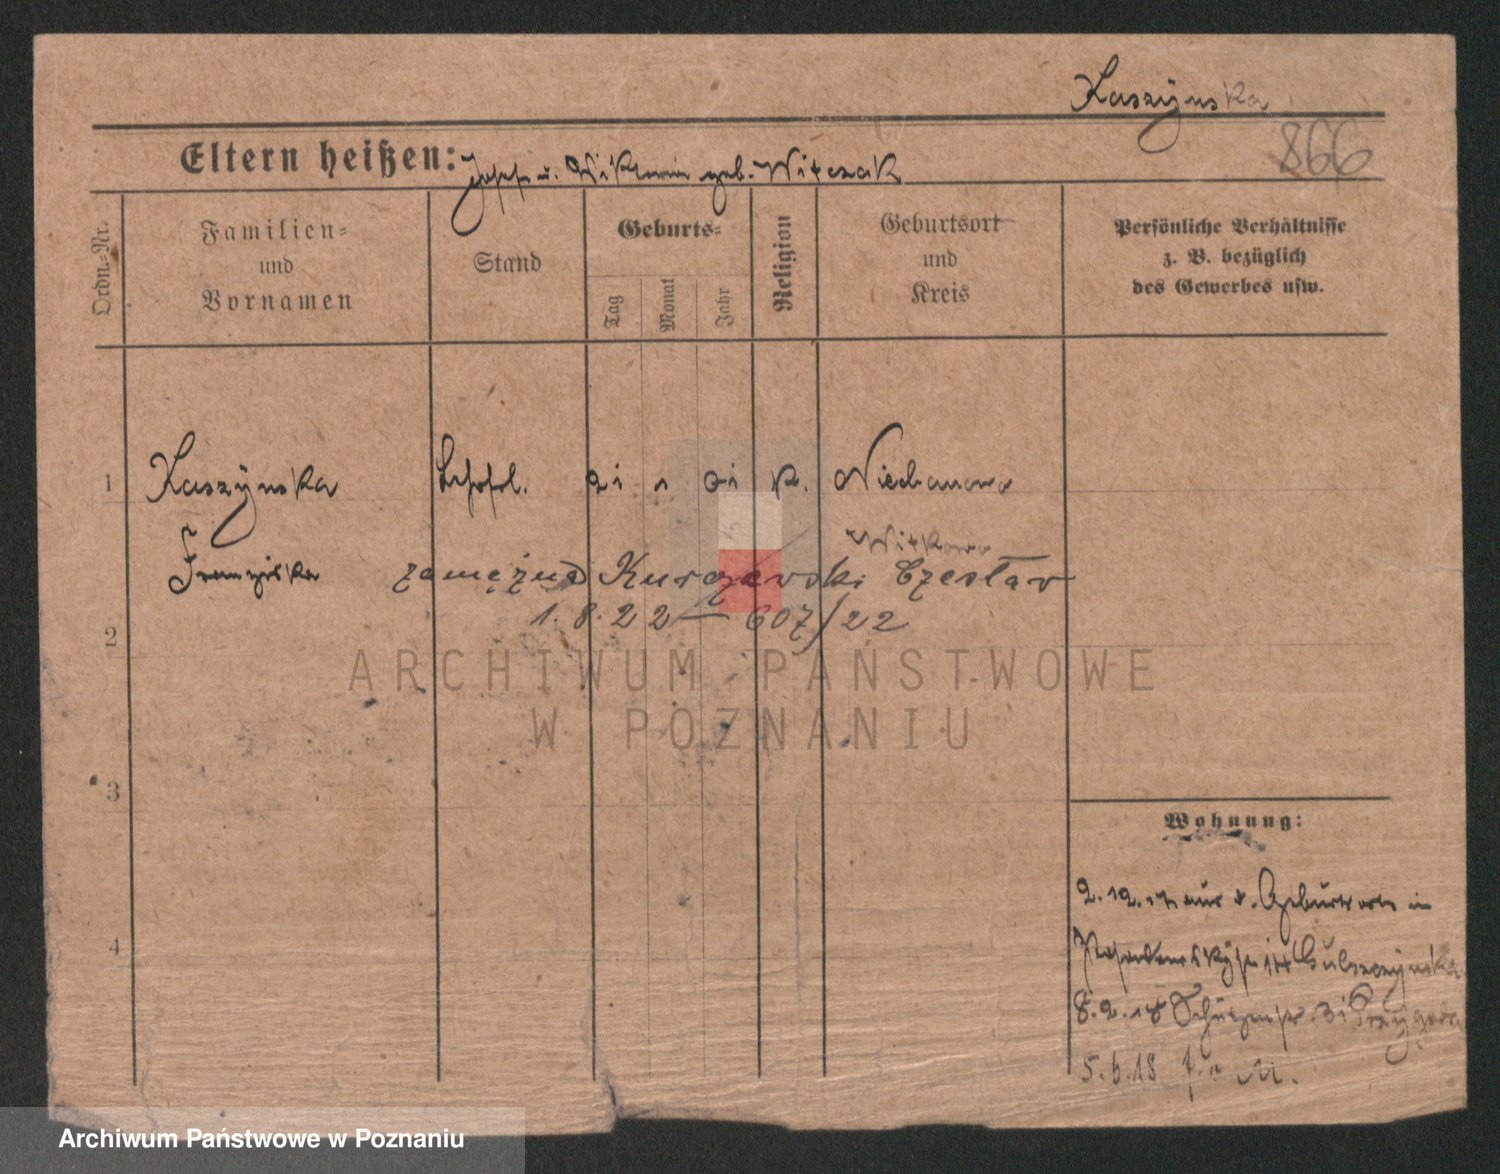 Kaszÿnska
866
Eltern heißen: Josef u. Wiktoria geb. Witczak
Ordn.-Nr.
Familien-
und
Vornamen
Stand
Geburts-
Tag
Monat
Jahr
Religion
Geburtsort
und
Kreis
Persönliche Verhältnisse
z. B. bezüglich
des Gewerbes usw.
1 Kaszÿnska 21 1 01 k. Niechanowo
Witkowo
Franziska zamężna Kurczewski Czesław
1.8.22 — 607/22
2
3
4
Wohnung:
2.12.17 aus d. Geburtsorte in
8.2.18 Schützenstr. 31
5.6.18
ARCHIWUM PAŃSTWOWE
W POZNANIU
Archiwum Państwowe w Poznaniu